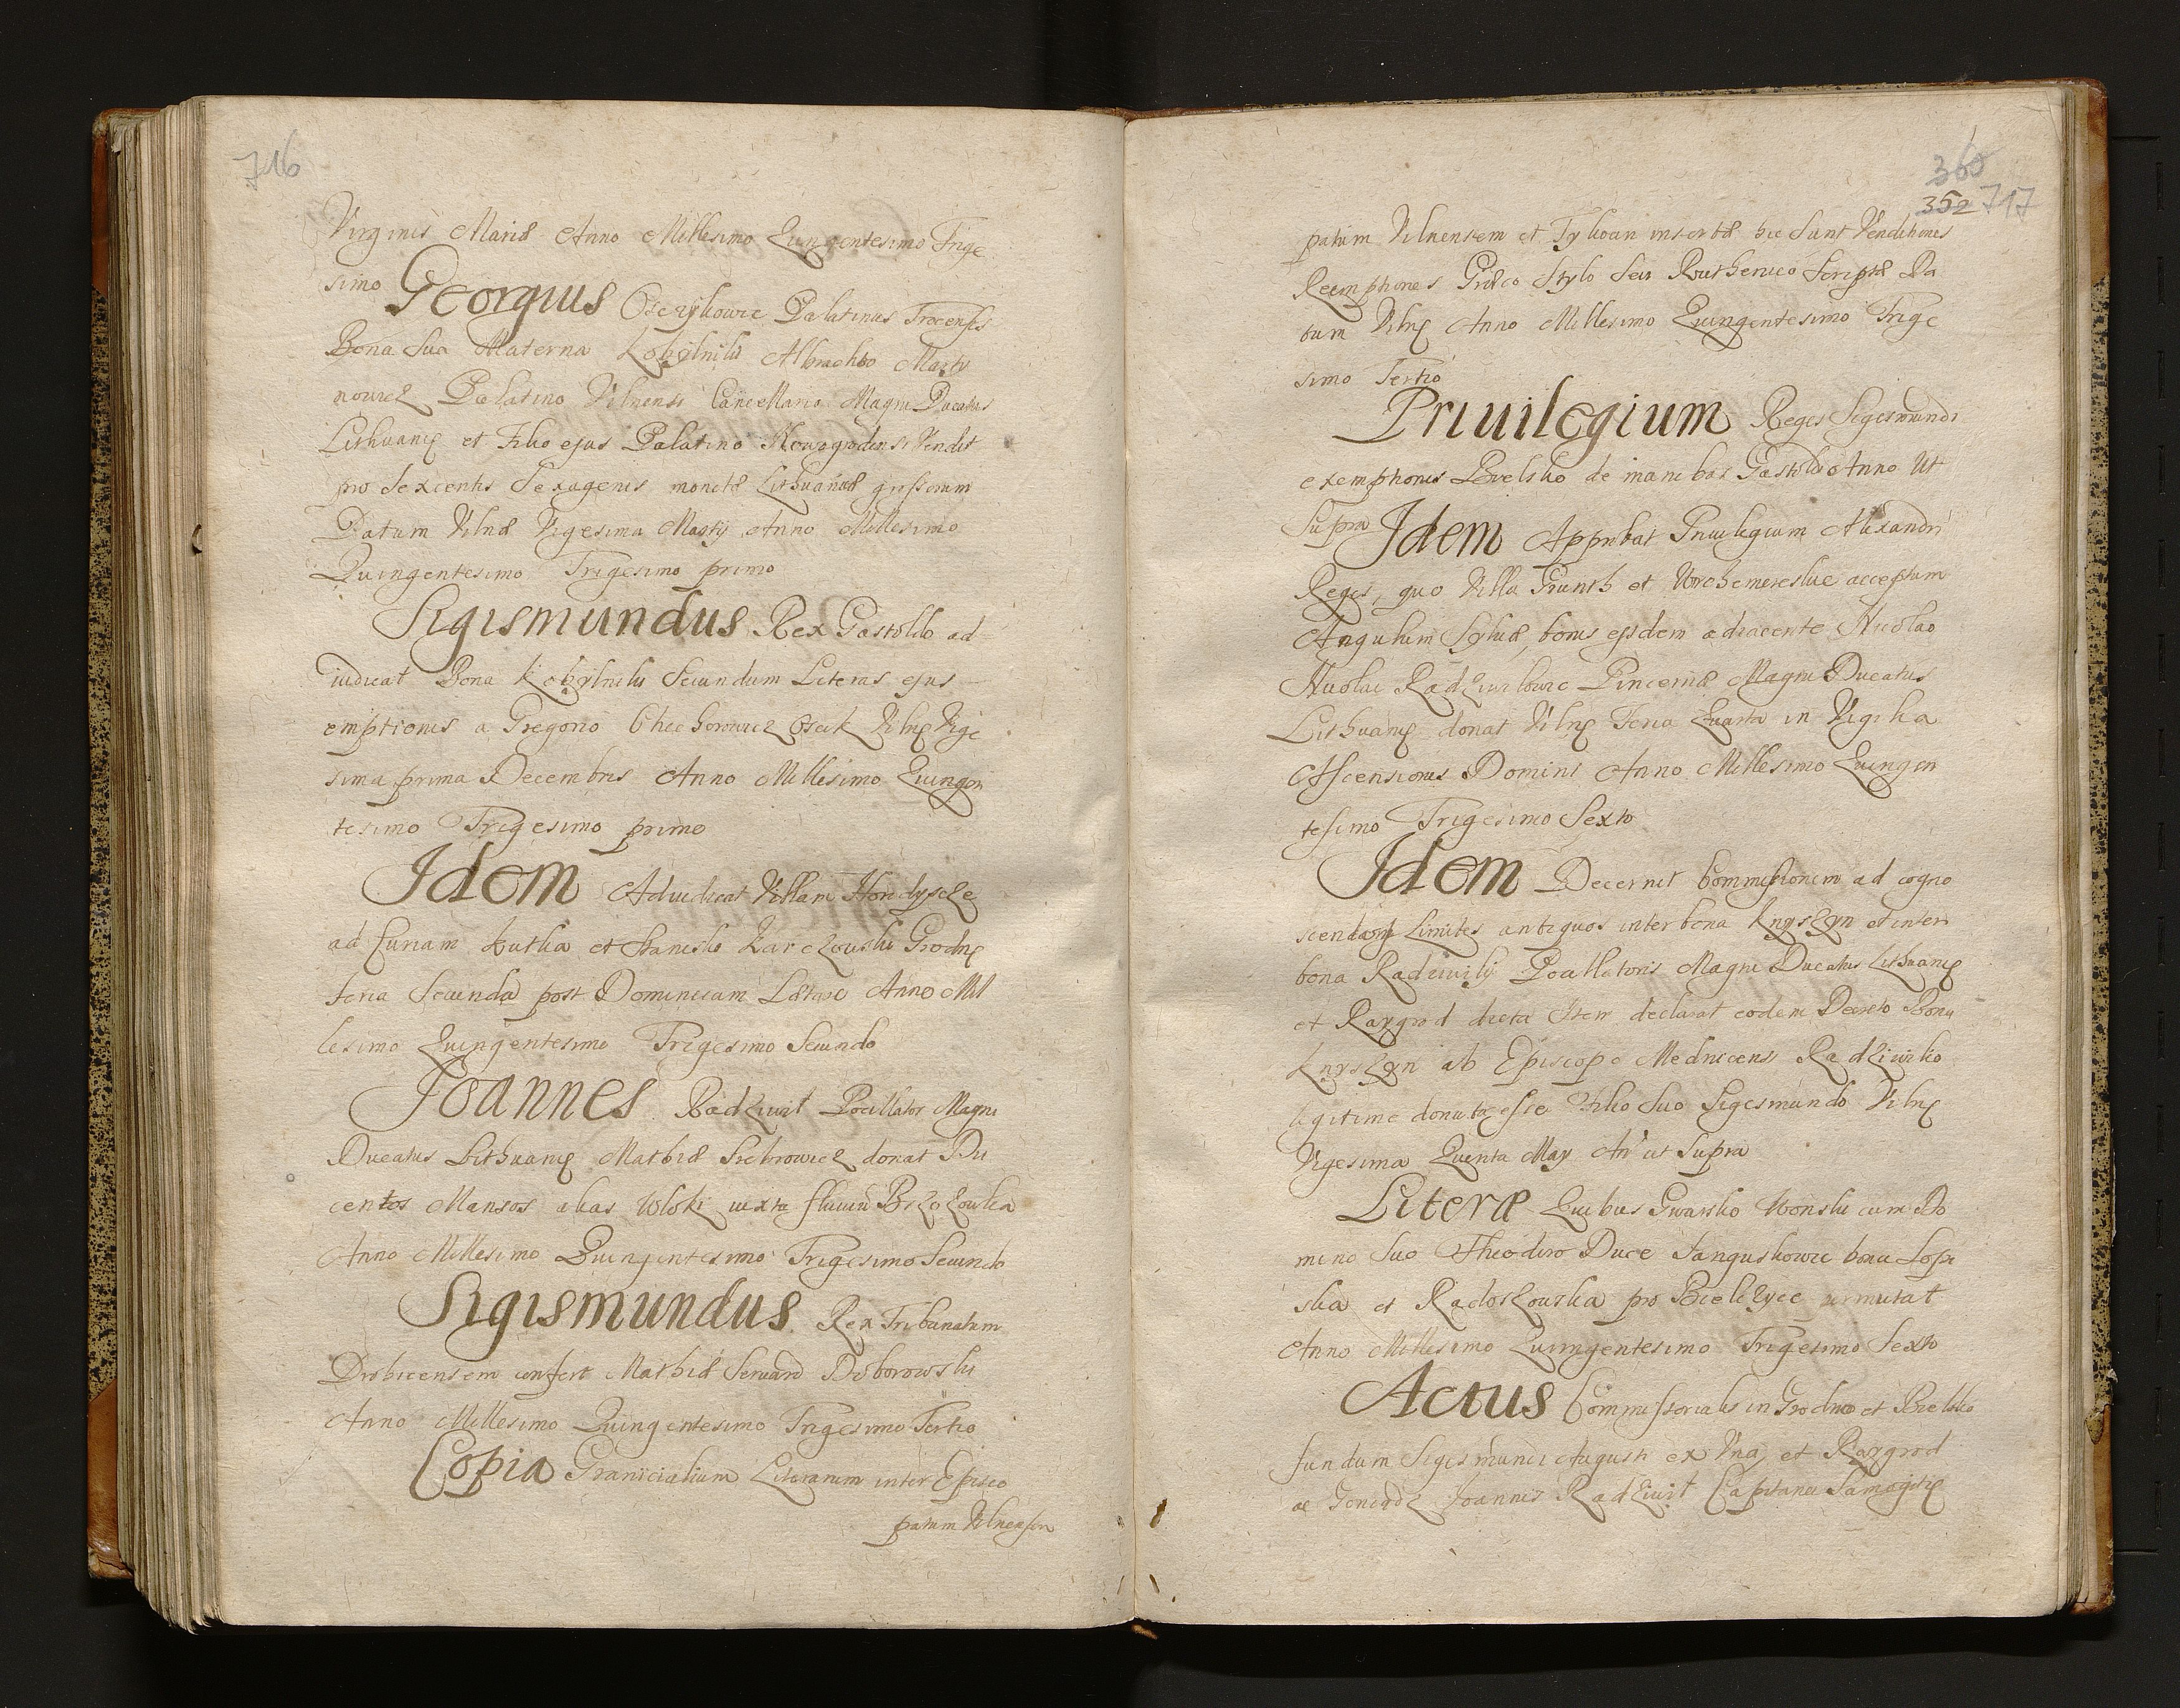 716
Virginis Mariæ Anno Millesimo Quingentesimo Trige
simo Georgius Oscikowic Palatinus Trocensis
Bona sua Materna Kobÿlniki Albrachto Marty
nowicz Palatino Vilnensi Cancellario Magni Ducatus
Lithvanię et Filio ejus Palatino Nowogrodensi Vendit
pro Sexcentis Sexagenis monetæ Lithvanicæ grossorum
Datum Vilnæ Vigesima Martij Anno Millesimo
Quingentesimo Trigesimo primo
Sigismundus Rex Gastoldo ad
iudicat Bona Kobÿlniki Secundum Literas ejus
emptionis a Gregorio Oscik Vilnę Vige
sima prima Decembris Anno Millesimo Quingen
tesimo Trigesimo primo
Idem Adiudicat Villam
ad Curiam et Grodnę
feria Secunda post Dominicam Lætare Anno Mil
lesimo Quingentesimo Trigesimo Secundo
Joannes Radziwit Pocillator Magni
Ducatus Lithvanię Mathiæ donat Du
centos Mansos alias Wloki iuxta fluviū Brzozowka
Anno Millesimo Quingentesimo Trigesimo Secundo
Sigismundus Rex Tribunatum
Drohicensem confert Mathiæ
Anno Millesimo Quingentesimo Trigesimo Tertio
Copia Granicialium Literarum inter Episco
patum Vilnensem
360
352 717
patum Vilnensem et Tykocin insertæ hic sunt Venditiones
Reemptiones Græco Stylo seu Ruthenico Scriptæ Da
tum Vilnę Anno Millesimo Quingentesimo Trige
simo Tertio
Priuilegium Regis Sigismundi
exemptionis Bielsko de manibus Gastoldi Anno Ut
Supra Idem Approbat Priuilegium Alexandri
Regis, quo Villa et acceptam
Angulum Sylvæ, bonis ejsdem adiacente Nicolao
Nicolai Radziwilowic Pincernæ Magni Ducatus
Lithvanię donat Vilnę Feria Quarta in Vigilia
Ascensionis Domini Anno Millesimo Quingen
tesimo Trigesimo Sexto
Idem Decernit Commissionem ad cogno
scendam Limites antiquos inter bona Knyszyn et inter
bona Radziwilÿ Pocillatoris Magni Ducatus Lithvanię
et Raygrod dicta Item declarat eodem Decreto Bona
Knyszyn ab Episcopo Mednicensi Radziwilo
legitime donata esse Filio Suo Sigismundo Vilnę
Vigesima Quinta May An̄ ut Supra
Literæ Quibus cum Do
mino Suo Theodoro Duce Sanguskowic bona
et Radoszowska pro permutat
Anno Millesimo Quingentesimo Trigesimo Sexto
Actus Commissorialis in Grodno et Bielsko
fundum Sigismundi Augusti ex Vna, et Raygrod
ac Goniądz Joannis Radziwit Capitanei Samogitię